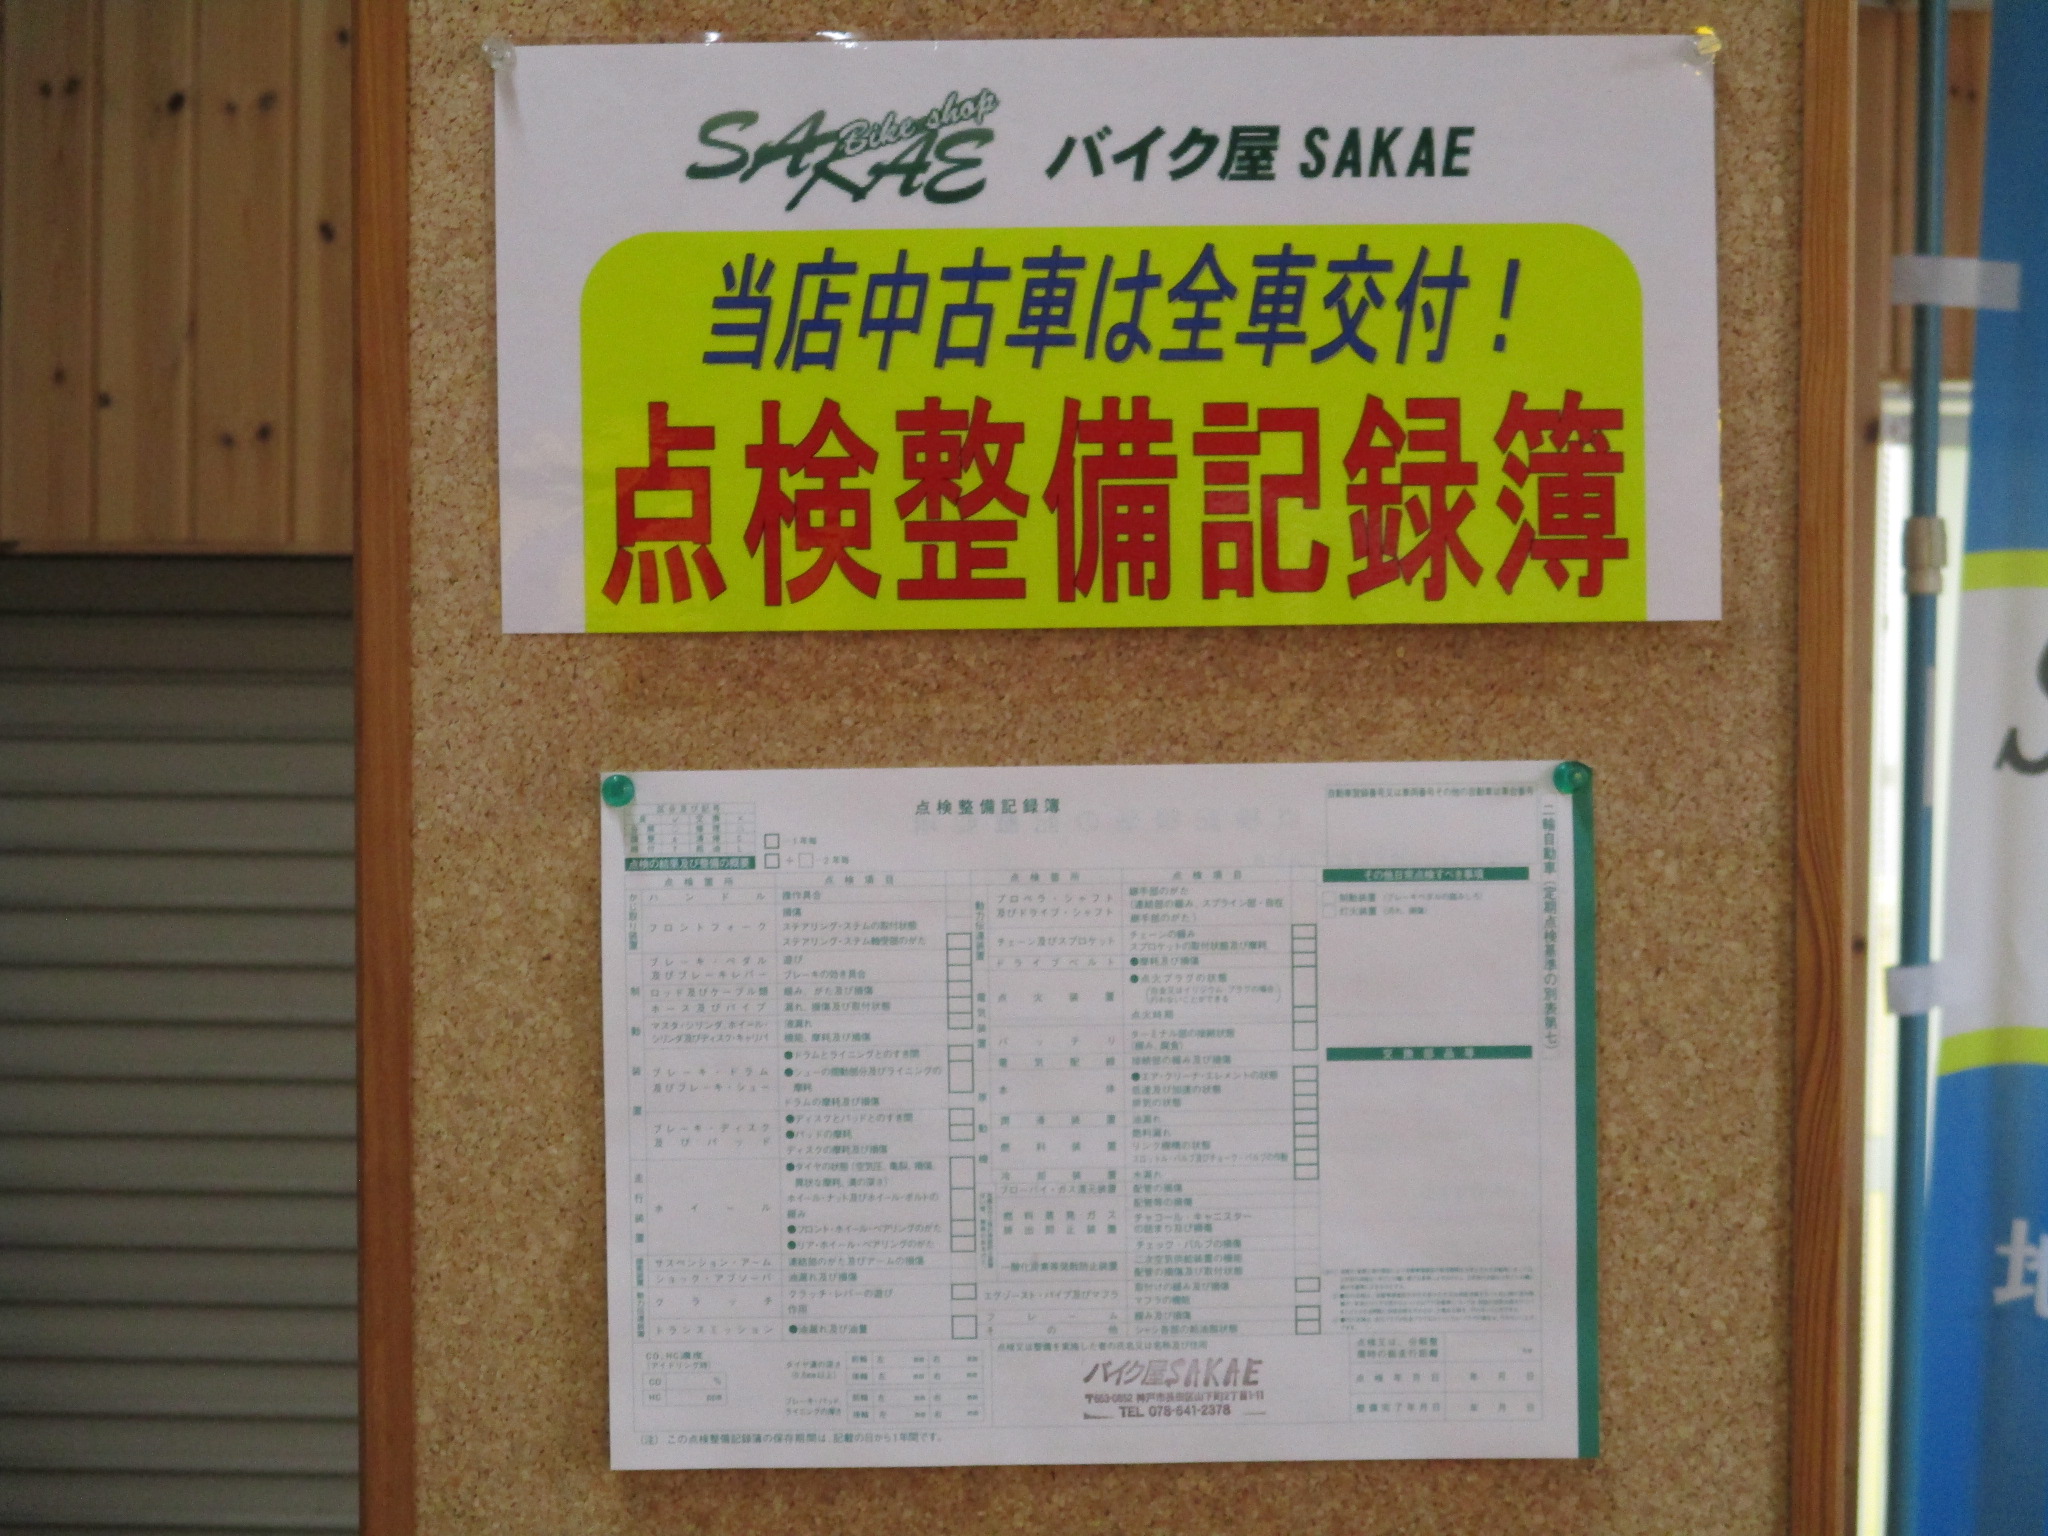 SAKAE Bike shop
バイク屋 SAKAE
当店中古車は全車交付！
点検整備記録簿
点検整備記録簿
自動車登録番号又は車両番号その他の自動車は車台番号
1年毎
2年毎
点検の結果及び整備の概要
点検箇所 点検項目
ハンドル 操作具合
フロントフォーク 損傷
ステアリング・ステムの取付状態
ステアリング・ステム軸受部のがた
ブレーキ・ペダル 遊び
及びブレーキレバー ブレーキの効き具合
ロッド及びケーブル類 緩み、がた及び損傷
ホース及びパイプ 漏れ、損傷及び取付状態
マスタ・シリンダ、ホイール・ 液漏れ
シリンダ及びディスク・キャリパ 機能、摩耗及び損傷
ブレーキ・ドラム ●ドラムとライニングとのすき間
及びブレーキ・シュー ●シューの摺動部分及びライニングの
摩耗
ドラムの摩耗及び損傷
ブレーキ・ディスク ●ディスクとパッドとのすき間
及びパッド ●パッドの摩耗
ディスクの摩耗及び損傷
ホイール ●タイヤの状態（空気圧、亀裂、損傷、
異状な摩耗、溝の深さ）
ホイール・ナット及びホイール・ボルトの
緩み
●フロント・ホイール・ベアリングのがた
●リア・ホイール・ベアリングのがた
サスペンション・アーム 連結部のがた及びアームの損傷
ショック・アブソーバ 油漏れ及び損傷
クラッチ クラッチ・レバーの遊び
作用
トランスミッション ●油漏れ及び油量
CO、HC濃度
（アイドリング時）
CO %
HC ppm
タイヤ溝の深さ
前輪 左 mm 右 mm
後輪 左 mm 右 mm
ブレーキ・パッド
ライニングの厚さ
前輪 左 mm 右 mm
後輪 左 mm 右 mm
（注）この点検整備記録簿の保存期間は、記載の日から1年間です。
点検箇所 点検項目
動力伝達装置
プロペラ・シャフト 継手部のがた
及びドライブ・シャフト （連結部の緩み、スプライン部・自在
継手部のがた）
チェーン及びスプロケット チェーンの緩み
スプロケットの取付状態及び摩耗
ドライブベルト ●摩耗及び損傷
電気装置
点火装置 ●点火プラグの状態
点火時期
バッテリ ターミナル部の接続状態
電気配線 接続部の緩み及び損傷
本体 ●エア・クリーナ・エレメントの状態
低速及び加速の状態
排気の状態
潤滑装置 油漏れ
燃料装置 燃料漏れ
リンク機構の状態
スロットル・バルブ及びチョーク・バルブの作動
冷却装置 水漏れ
ブローバイ・ガス還元装置 配管の損傷
燃料蒸発ガス 配管等の損傷
排出抑止装置 チャコール・キャニスター
の詰まり及び損傷
チェック・バルブの機能
一酸化炭素等発散防止装置 二次空気供給装置の機能
配管の損傷及び取付状態
エグゾースト・パイプ及びマフラ 取付けの緩み及び損傷
マフラの機能
フレーム 緩み及び損傷
その他 シャシ各部の給油脂状態
点検又は整備を実施した者の氏名又は名称及び住所
バイク屋SAKAE
〒653-0852 神戸市長田区山下町2丁目1-11
TEL 078-641-2378
その他日常点検すべき事項
制動装置
灯火装置
交換部品等
点検年月日 年 月 日
整備完了年月日 年 月 日
二輪自動車（定期点検基準の別表第七）